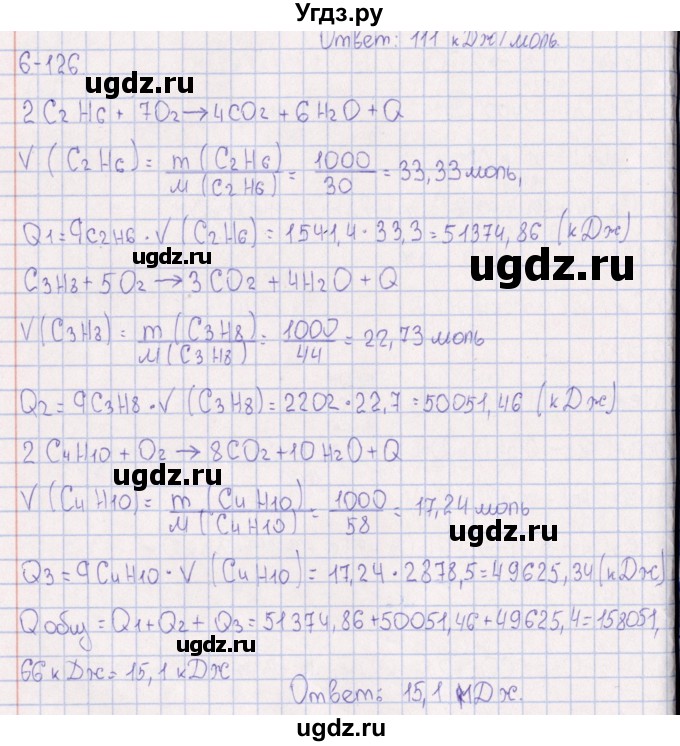 Угдз.ру
Ответ: 111 кДж/моль.
6-126
2 C2 H6 + 7O2 → 4CO2 + 6H2O + Q
V (C2H6) = m (C2H6) / M (C2H6) = 1000 / 30 = 33,33 моль,
ugdz.ru
Q1 = qC2H6 · V (C2H6) = 1541,4 · 33,3 = 51374,86 (кДж)
ugdz.ru
ugdz.ru
C3H8 + 5O2 → 3CO2 + 4H2O + Q
V (C3H8) = m (C3H8) / M (C3H8) = 1000 / 44 = 22,73 моль
ugdz.ru
Q2 = qC3H8 · V (C3H8) = 2202 · 22,7 = 50051,46 (кДж)
2 C4H10 + O2 → 8CO2 + 10H2O + Q
ugdz.ru
V (C4H10) = m (C4H10) / M (C4H10) = 1000 / 58 = 17,24 моль
ugdz.ru
Q3 = qC4H10 · V (C4H10) = 17,24 · 2878,5 = 49625,34 (кДж)
Qобщ = Q1 + Q2 + Q3 = 51374,86 + 50051,46 + 49625,4 = 158051,
ugdz.ru
66 кДж = 15,1 кДж
Ответ: 15,1 МДж.
ugdz.ru
ugdz.ru